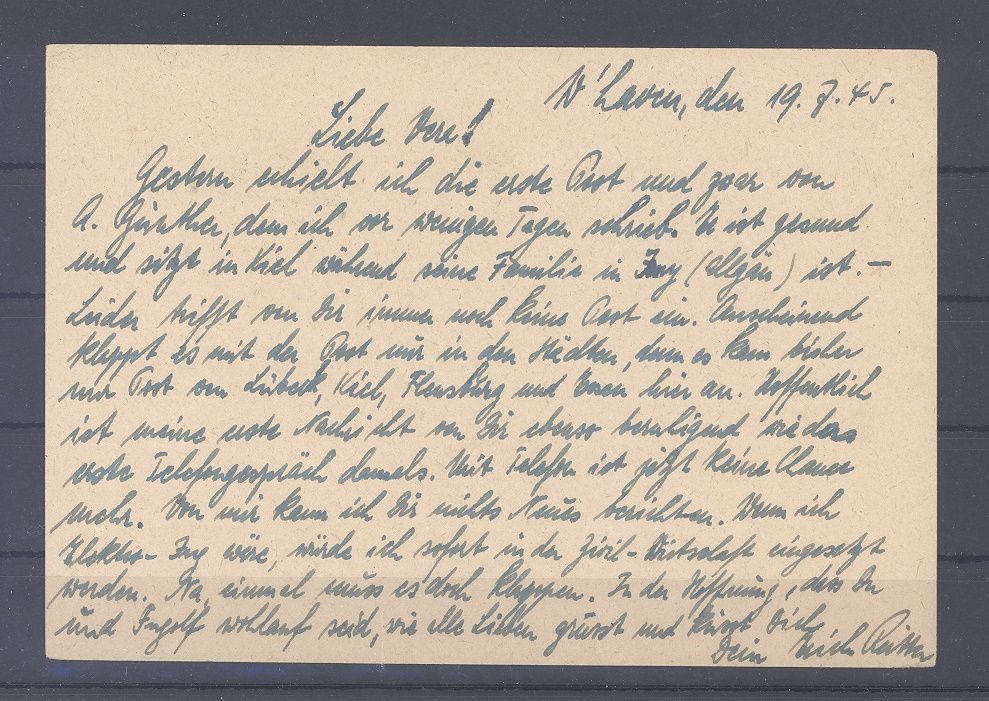 W'haven, den 19. 7. 45.
Liebe Vera!
Gestern erhielt ich die erste Post und zwar von
A. Günther, dem ich vor wenigen Tagen schrieb. Er ist gesund
und sitzt in Kiel während seine Familie in (Allgäu) ist. —
Leider trifft von Dir immer noch keine Post ein. Anscheinend
klappt es mit der Post nur in den Städten, denn es kam bisher
nur Post von Lübeck, Kiel, Flensburg und Essen hier an. Hoffentlich
ist meine erste Nachricht von Dir ebenso beruhigend wie das
erste Telefongespräch damals. Mit Telefon ist jetzt keine Chance
mehr. Von mir kann ich Dir nichts Neues berichten. Wenn ich
Elektro-Ing wäre, würde ich sofort in der Zivil-Wirtschaft eingesetzt
werden. Na, einmal muss es doch klappen. In der Hoffnung, dass Du
und Ingolf wohlauf seid, wie alle Lieben grüsst und küsst Dich
Dein Erich